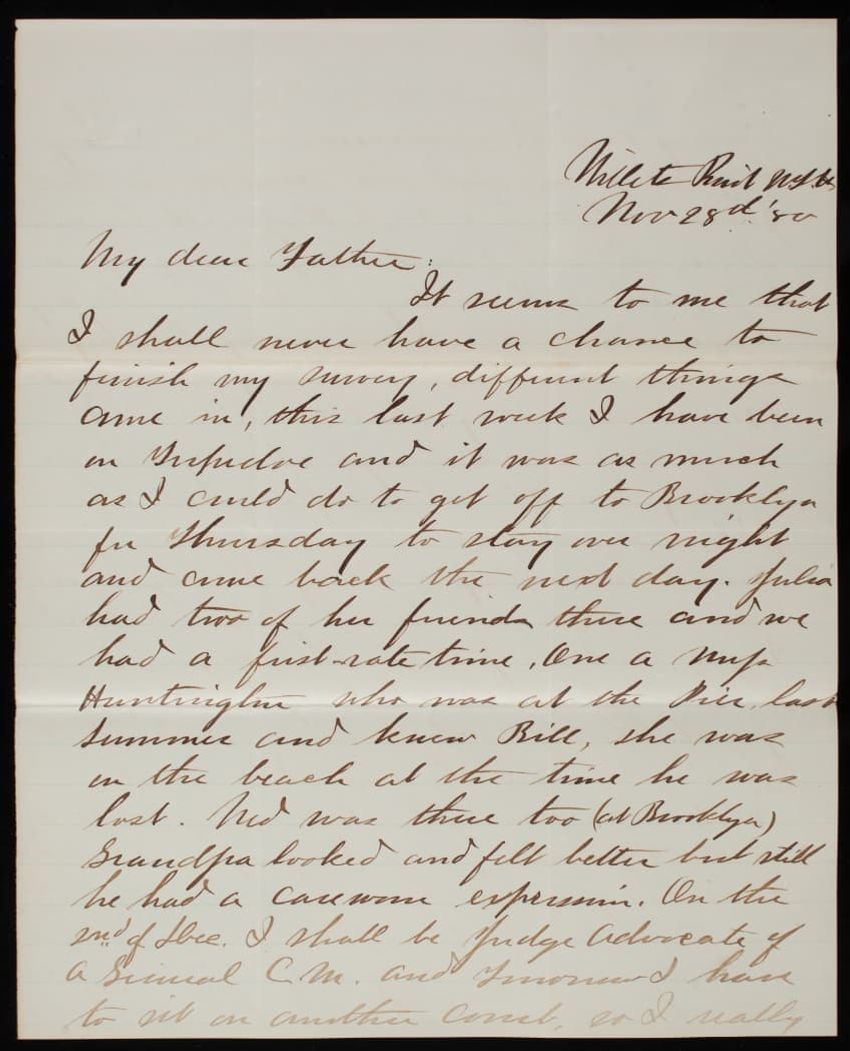 Willets Point N.Y.H.
Nov 28d '80
My dear Father:
It seems to me that
I shall never have a chance to
finish my survey, different things
come in, this last week I have been
on and it was as much
as I could do to get off to Brooklyn
for Thursday to stay over night
and come back the next day. Julia
had two of her friends there and we
had a first-rate time, One a Miss
Huntington who was at the Pier last
Summer and knew Bill, she was
on the beach at the time he was
lost. Ned was there too (at Brooklyn)
Grandpa looked and felt better but still
he had a careworn expression. On the
2nd of Dec. I shall be Judge Advocate of
a General C.M. and tomorrow I have
to sit on another Court, so I really